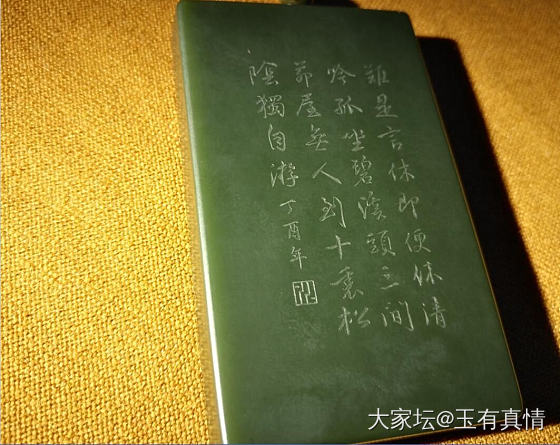 難是言休即便休清
吟孤坐碧溪頭三間
茅屋無人到十裏松
陰獨自游丁酉年
大家坛@玉有真情